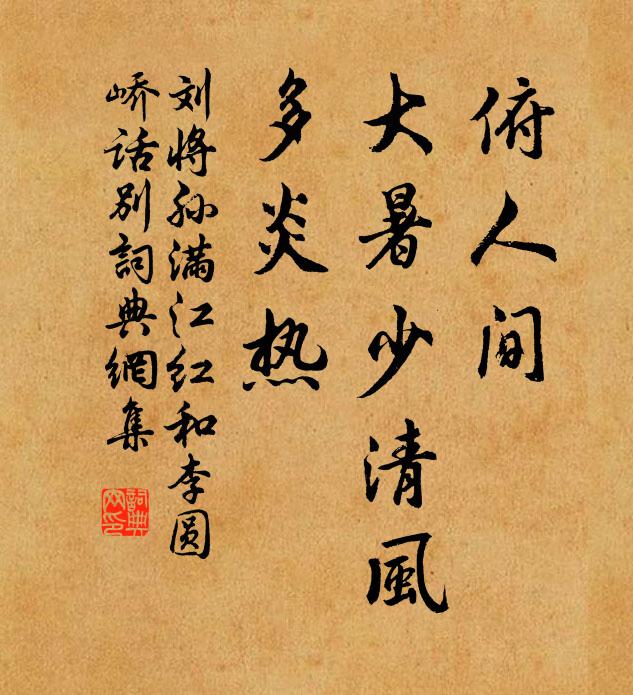 俯人间
大暑少清風
多炎热
刘将孙满江红和李圆
峤话别詞典網集
詞典
网印